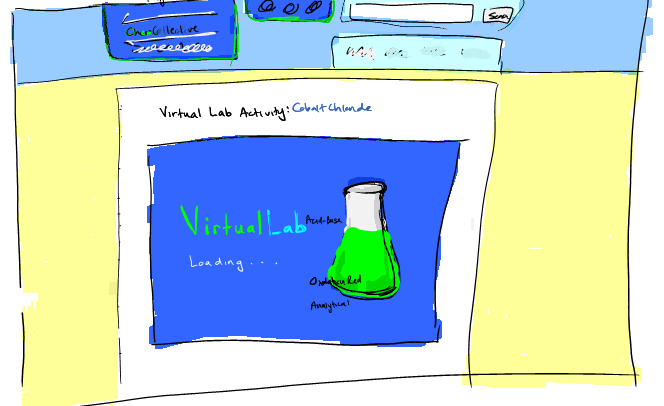 ChemCollective
Virtual Lab Activity: Cobalt Chloride
Virtual Lab
Acid-Base
Loading...
Oxidation Red
Analytical